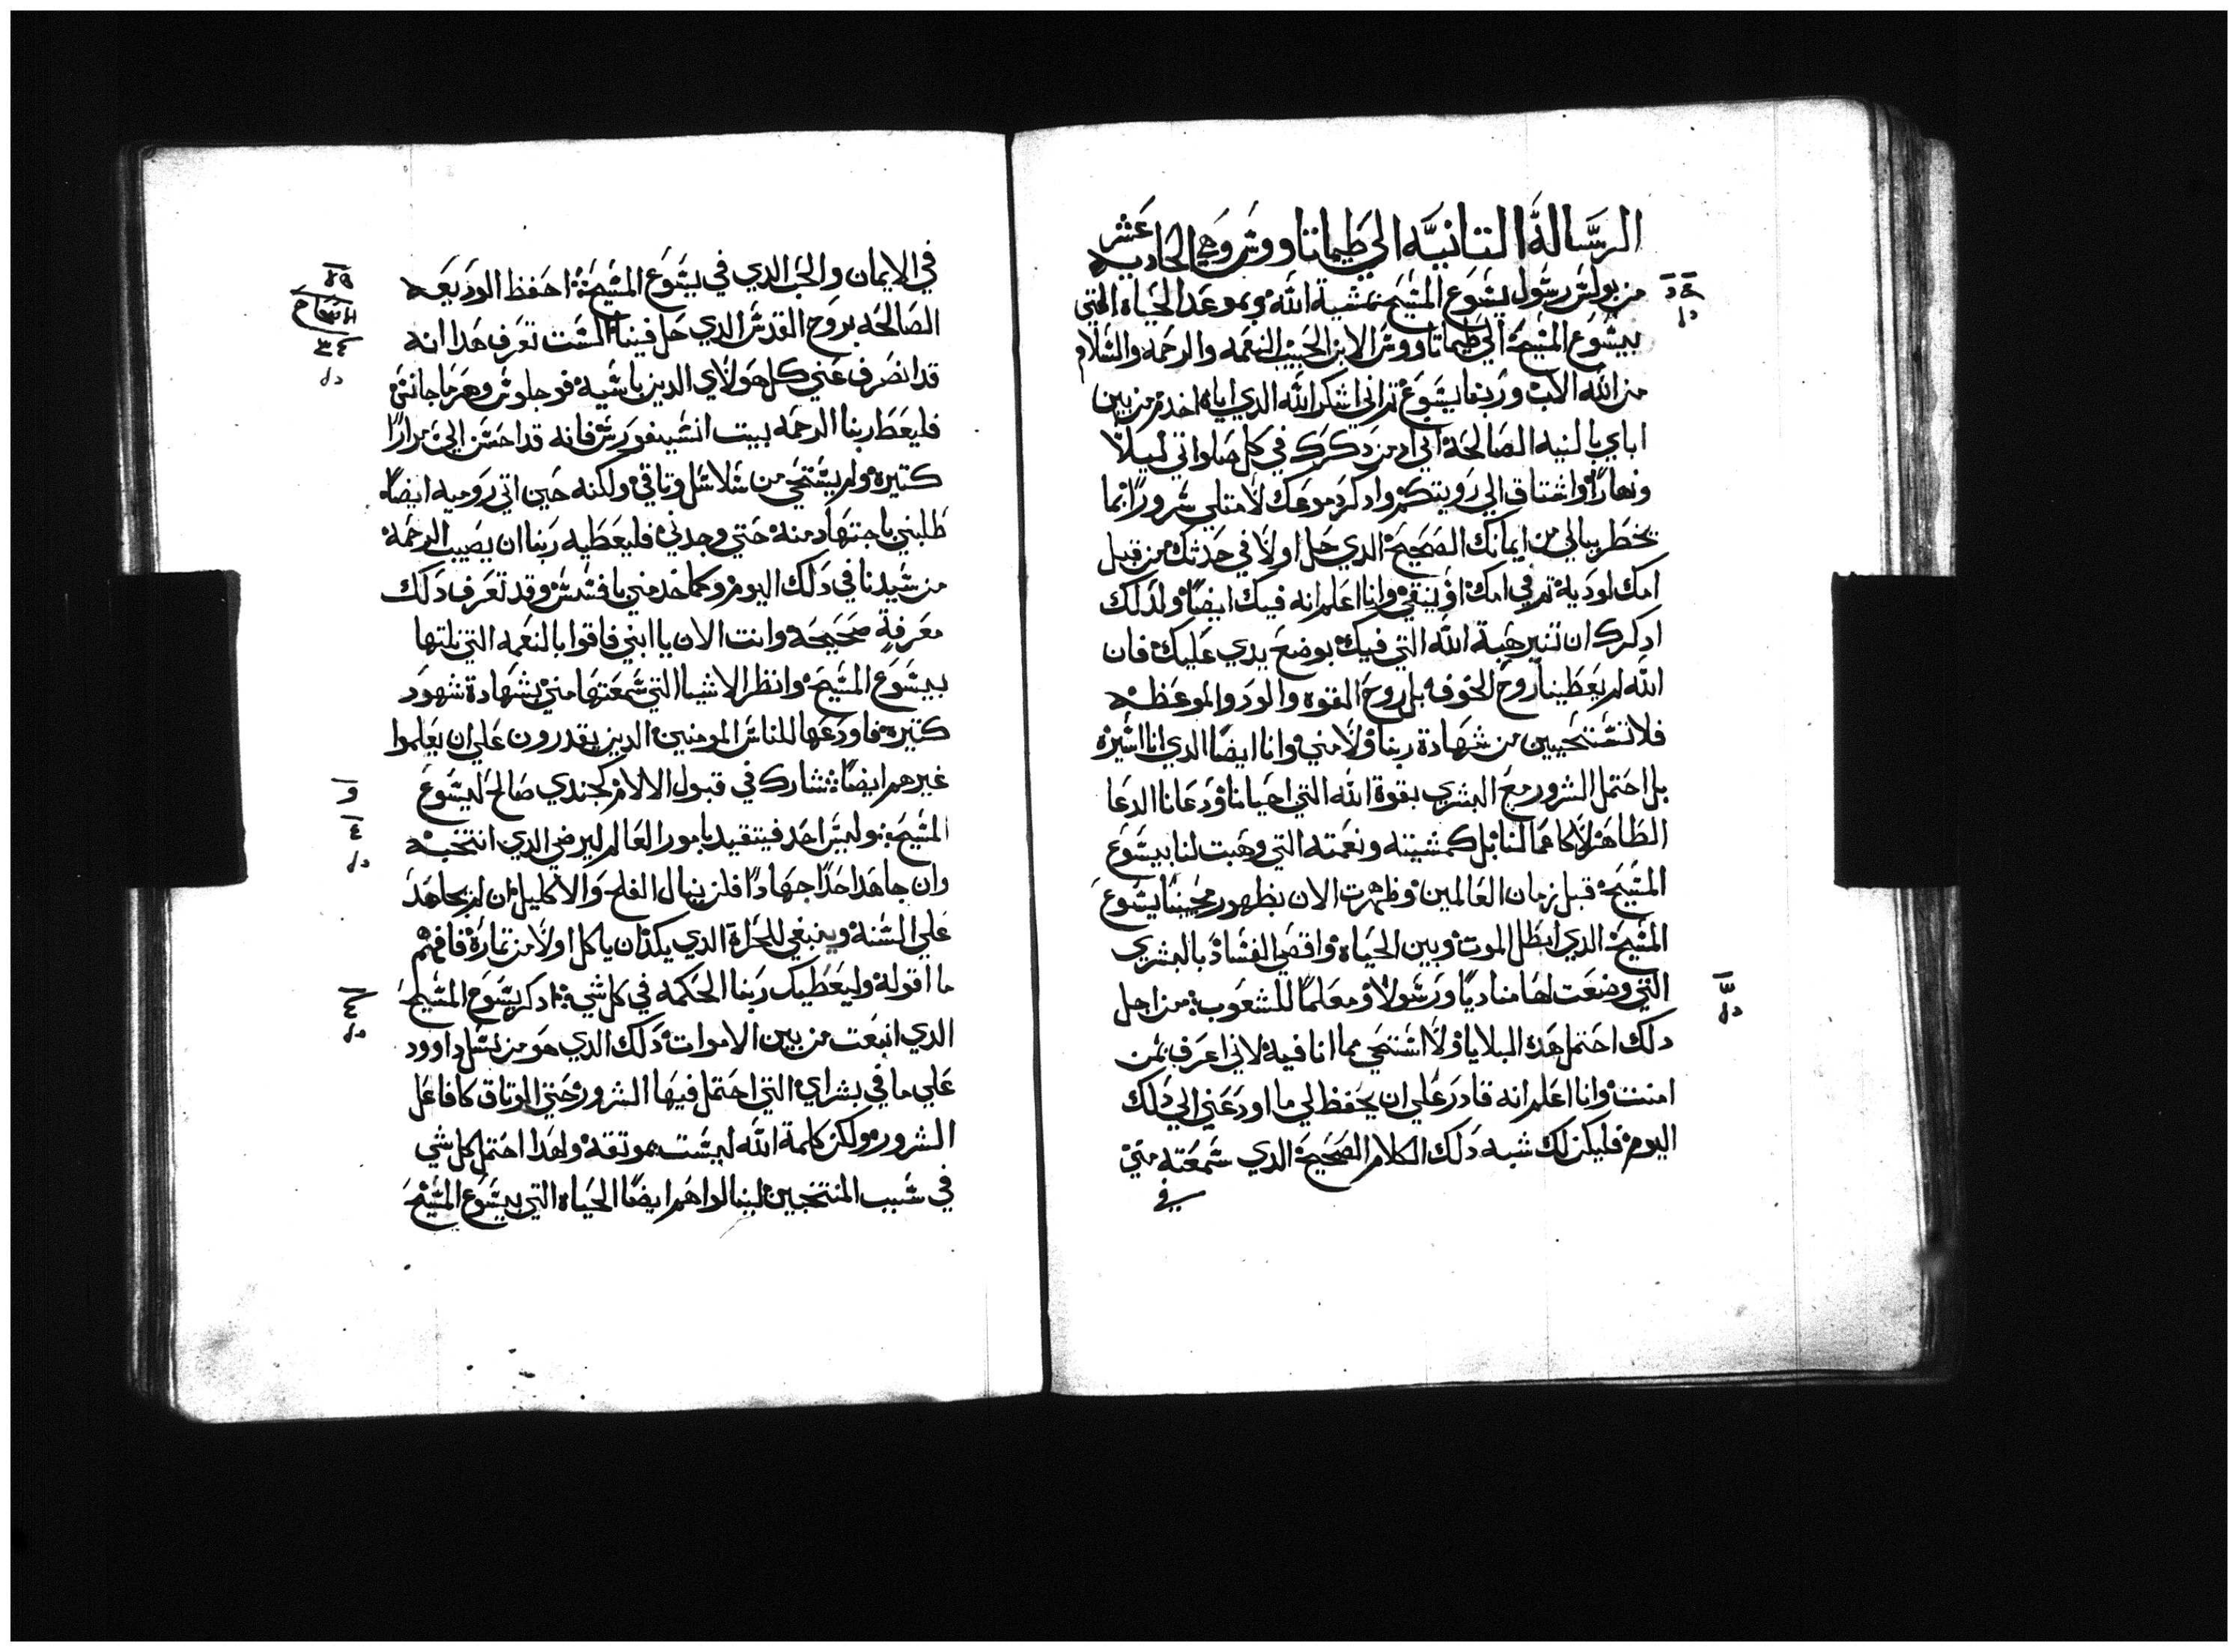 الرسالة التانيه الي طيماتاووس وهي الحاديه عشر
من بولس رسول يسوع المسيح بمشية الله وبموعد الحياه التي
بيسوع المسيح الي طيماتاووس الابن الحبيب النعمه والرحمه والسلام
من الله الاب وربنا يسوع تم اني اشكر الله الدي اياه اخدم من بين
اباي بالنيه الصالحة اني ادمن دكرك في كل صلواتي ليلاً
ونهاراً واشتاق الي رويتكم وادكر دموعك لامتلي سروراً بما
يخطر ببالي من ايمانك الصحيح الدي حل اولاً في جدتك من قبل
امك لوديه تم في امك اونيقي وانا اعلم انه فيك ايضاً ولدلك
ادكرك ان تنير هبة الله التي فيك بوضع يدي عليك فان
الله لم يعطينا روح الخوف بل روح القوه والود والموعظه
فلا تستحيين من شهادة ربنا ولا مني وانا ايضاً الدي انا اسيره
بل احتمل الشرور مع البشري بقوة الله التي احيانا ودعانا الدعا
الطاهر لا كاعمالنا بل كمشيته ونعمته التي وهبت لنا بيسوع
المسيح قبل زمان العالمين وظهرت الان بظهور محيينا يسوع
المسيح الدي ابطل الموت وبين الحياه واقصي الفساد بالبشري
التي وضعت لها مناديا ورسولاً ومعلماً للشعوب من اجل
دلك احتمل هده البلايا ولا استحي مما انا فيه لاني اعرف بمن
امنت وانا اعلم انه قادر علي ان يحفظ لي ما اودعني الي دلك
اليوم فليكن لك شبه دلك الكلام الصحيح الدي سمعته مني
في
في الايمان والحب الدي في يسوع المسيح احفظ الوديعه
الصالحه بروح القدس الدي حل فينا الست تعرف هدا انه
قد انصرف عني كل هولاي الدين باسيه فوجلوس وهرماجانس
فليعط ربنا الرحمه بيت انسيفورس فانه قد احسن الي مراراً
كتيره ولم يستحي من سلاسل وتاقي ولكنه حين اتي روميه ايضاً
طلبني باجتهاد منه حتي وجدني فليعطيه ربنا ان يصيب الرحمة
من سيدنا في دلك اليوم وكما خدمني بافسس وقد تعرف دلك
معرفة صحيحه وانت الان يا ابني فاقوا بالنعمه التي نلتها
بيسوع المسيح وانظر الاشيا التي سمعتها مني بشهادة شهود
كتيره فاودعها للناس المومنين الدين يقدرون علي ان يعلموا
غيرهم ايضاً تشارك في قبول الالام كجندي صالح ليسوع
المسيح وليس احد فيتقيد بامور العالم ليرضي الدي انتخبه
وان جاهد احداً جهاداً فلن ينال الفلح والاكليل ان لم يجاهد
علي السنة وينبغي للحرات الدي يكد ان ياكل اولاً من تمارة فافهم
ما اقوله وليعطيك ربنا الحكمه في كل شي ادكر يسوع المسيح
الدي انبعت من بين الاموات دلك الدي هو من نسل داوود
علي ما في بشراي التي احتمل فيها الشرور حتي الوتاق كفاعل
الشرور ولكن كلمة الله ليست موتقة ولهدا احتمل كل شي
في سبب المنتخبين لينالوا هم ايضاً الحياه التي بيسوع المسيح